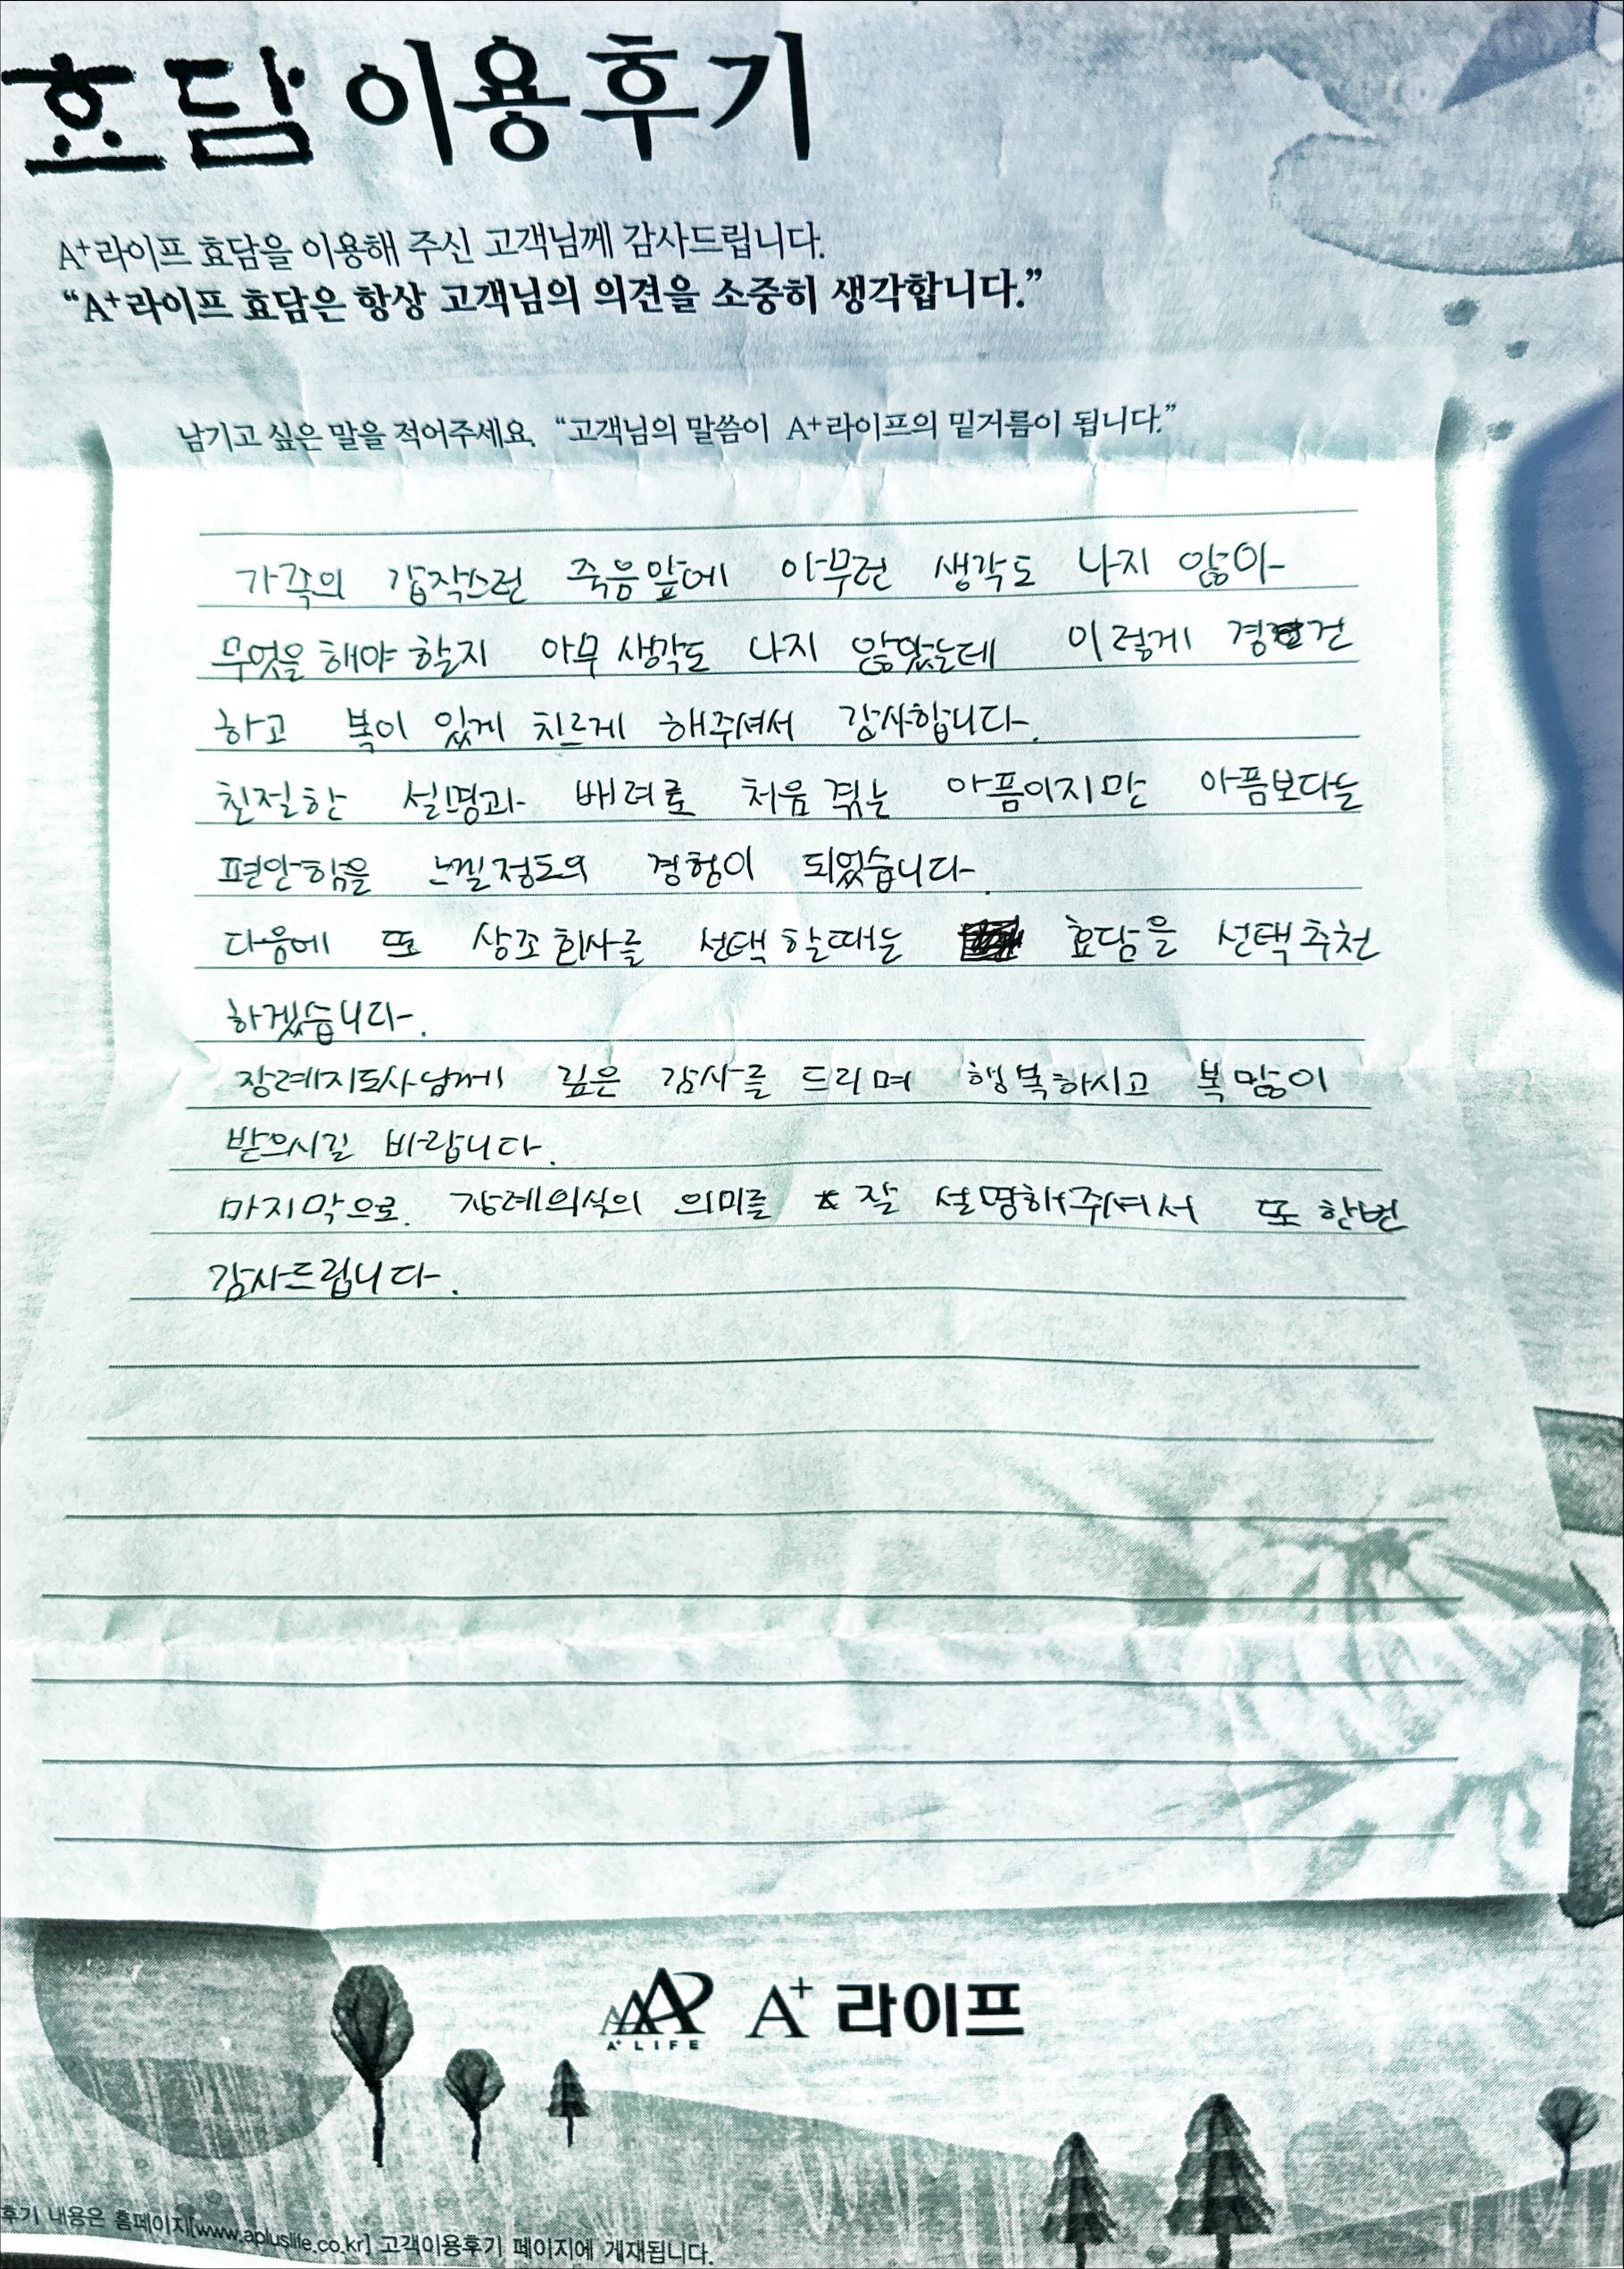 효담 이용후기
A⁺라이프 효담을 이용해 주신 고객님께 감사드립니다.
“A⁺라이프 효담은 항상 고객님의 의견을 소중히 생각합니다.”
남기고 싶은 말을 적어주세요. “고객님의 말씀이 A⁺라이프의 밑거름이 됩니다.”
가족의 갑작스런 죽음앞에 아무런 생각도 나지 않아
무엇을 해야 할지 아무 생각도 나지 않았는데 이렇게 경건
하고 복이 있게 치르게 해주셔서 감사합니다.
친절한 설명과 배려로 처음 겪는 아픔이지만 아픔보다는
편안함을 느낄정도의 경험이 되었습니다.
다음에 또 상조회사를 선택할때는 효담을 선택추천
하겠습니다.
장례지도사님께 깊은 감사를 드리며 행복하시고 복많이
받으시길 바랍니다.
마지막으로 장례의식의 의미를 잘 설명해주셔서 또 한번
감사드립니다.
A⁺ LIFE A⁺ 라이프
후기 내용은 홈페이지[www.apluslife.co.kr] 고객이용후기 페이지에 게재됩니다.